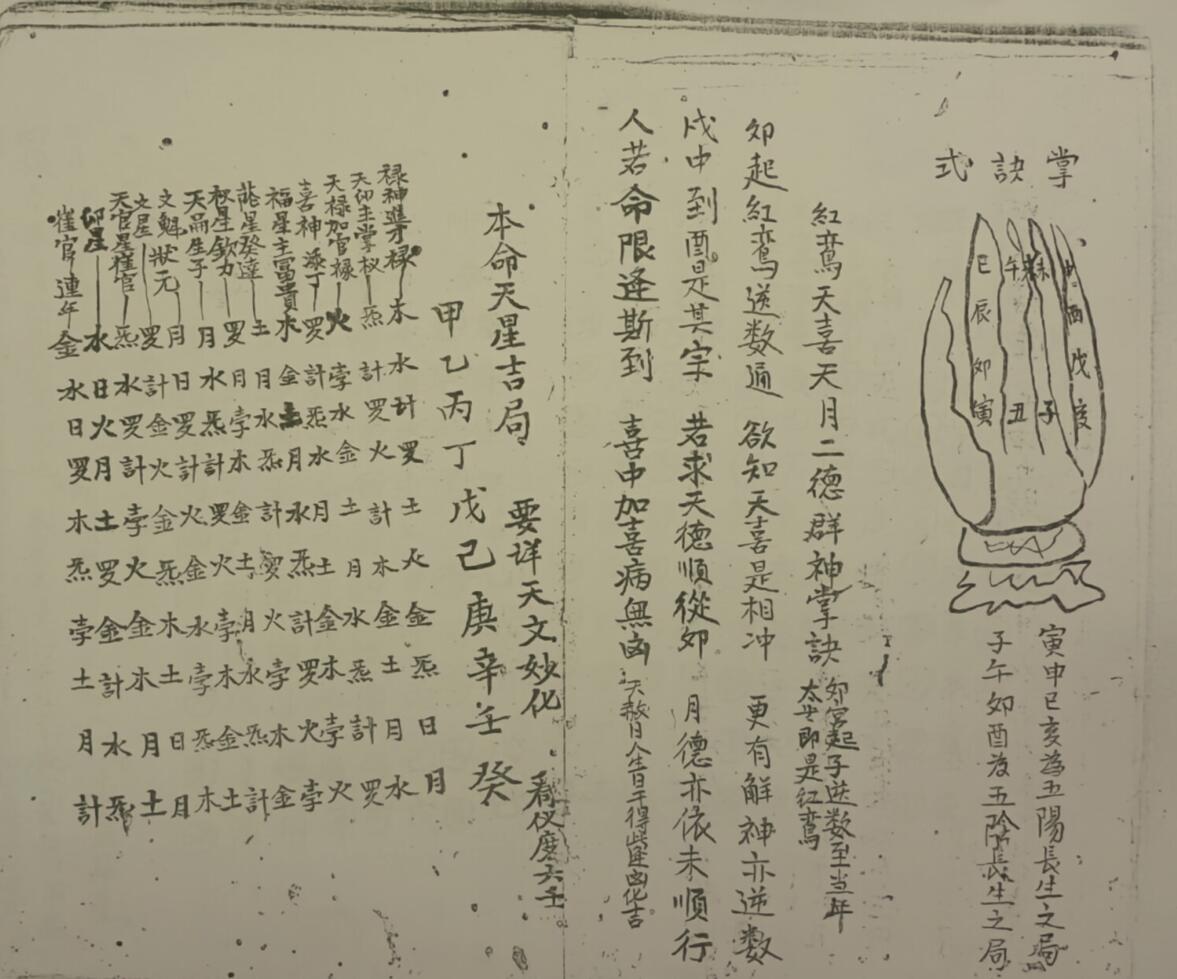 掌訣式
巳辰卯寅
午丑
未子
申酉戌亥
寅申巳亥為五陽長生之局
子午卯酉為五陰長生之局
紅鸞天喜天月二德群神掌訣
卯宮起子逆数至当年
太岁即是紅鸞
卯起紅鸞逆数通 欲知天喜是相冲 更有解神亦逆数
戌中到酉是其宗 若求天德順從卯 月德亦依未順行
人若命限逢斯到 喜中加喜病無凶 天赦日人生日干得此逢凶化吉
本命天星吉局 要详天文妙化 看仪度六壬
甲乙丙丁戊己庚辛壬癸
禄神進才禄 木水計罗土火金炁日月
天仰主掌权 炁計罗火計木金土月水
天禄加官禄 火孛水金土月水炁計罗
喜神添丁 罗計炁水月土金木孛火
福星主富貴 水金土月水炁計罗火孛
龍星發達 土月水炁計罗火孛木金
权星欽力 罗月孛木金土月水炁計
天嗣生子 月水炁計罗火孛木金土
文魁狀元 月日罗計火金水孛炁木
文星 罗計金火金炁木土日月
天官星催官 炁水罗計孛火金木月土
印星 水日火月土罗金計水炁
催官連年 金水日罗木炁孛土月計